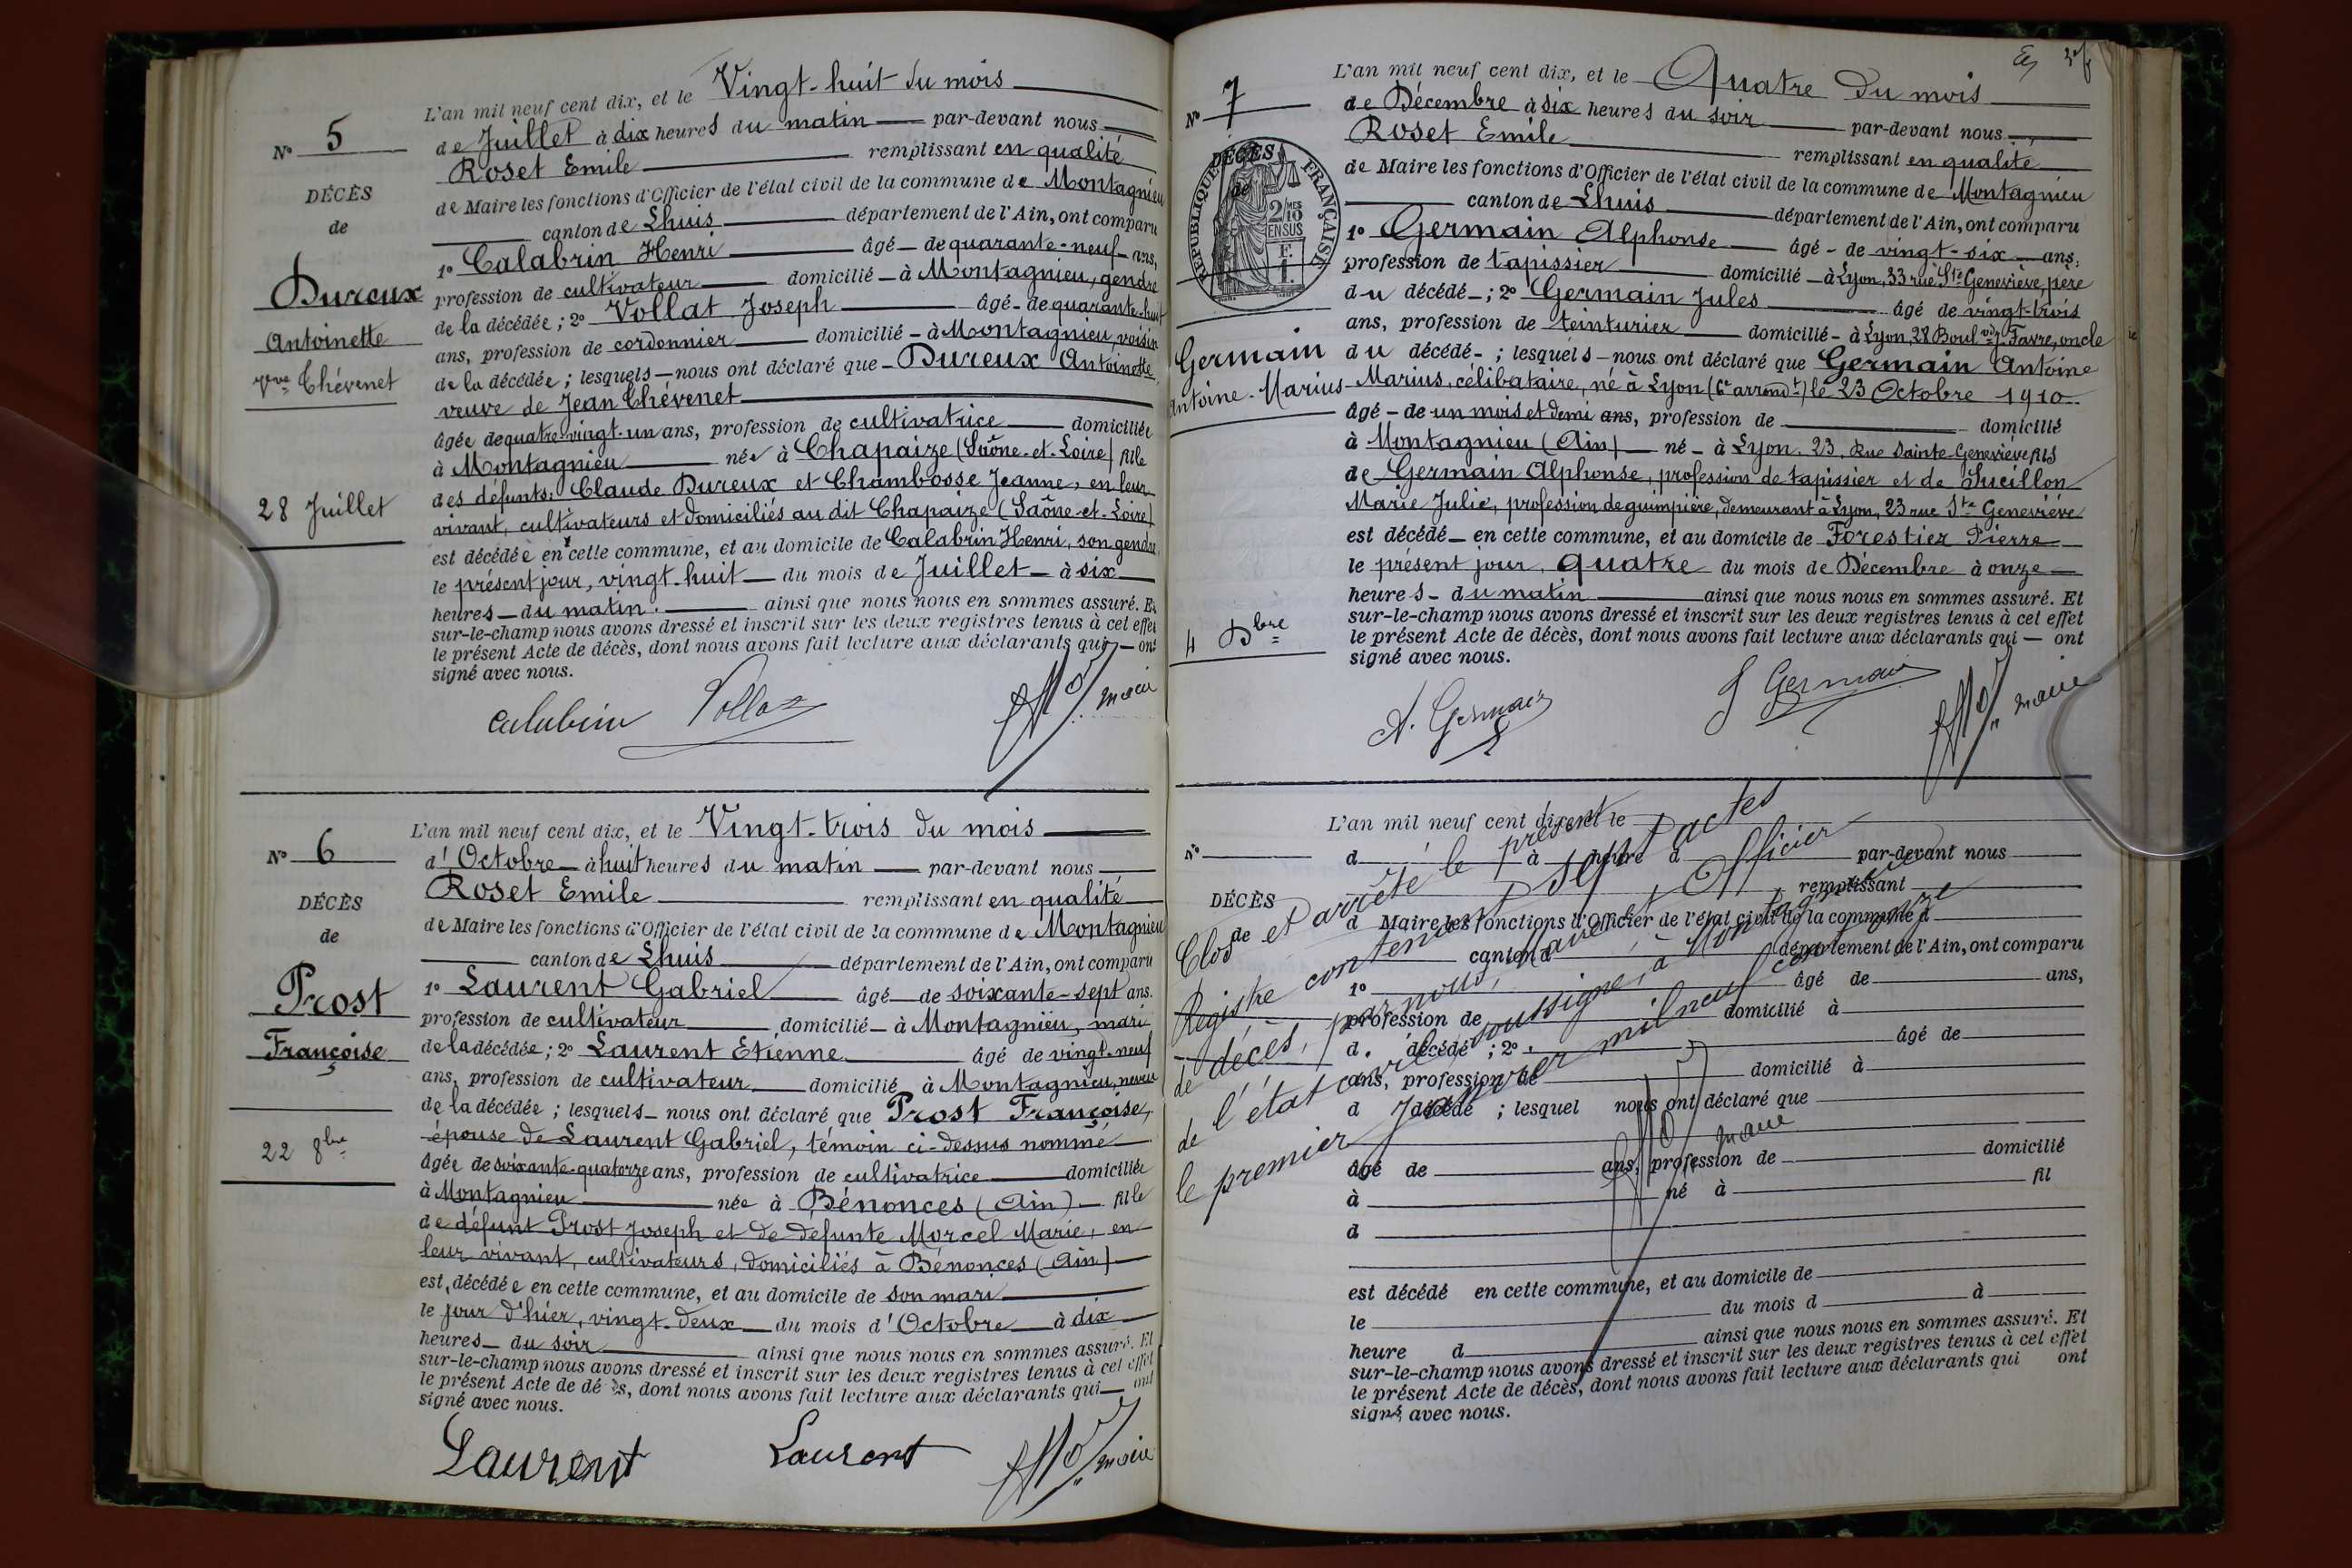 N° 5
DÉCÈS
de
Dureux
Antoinette
Vve Chévenet
28 Juillet
L'an mil neuf cent dix, et le Vingt-huit du mois
de Juillet à dix heures du matin par-devant nous
Roset Emile remplissant en qualité
de Maire les fonctions d'Officier de l'état civil de la commune de Montagnieu
canton de Lhuis département de l'Ain, ont comparu
1° Calabrin Henri âgé de quarante-neuf ans,
profession de cultivateur domicilié à Montagnieu, gendre
de la décédée ; 2° Vollat Joseph âgé de quarante-huit
ans, profession de cordonnier domicilié à Montagnieu, voisin
de la décédée ; lesquels nous ont déclaré que Dureux Antoinette,
veuve de Jean Chévenet
âgée de quatre-vingt-un ans, profession de cultivatrice domiciliée
à Montagnieu née à Chapaize (Saône-et-Loire) fille
des défunts: Claude Dureux et Chambosse Jeanne, en leur
vivant, cultivateurs et domiciliés au dit Chapaize (Saône-et-Loire)
est décédée en cette commune, et au domicile de Calabrin Henri, son gendre,
le présent jour, vingt-huit du mois de Juillet à six
heures du matin. ainsi que nous nous en sommes assuré. Et
sur-le-champ nous avons dressé et inscrit sur les deux registres tenus à cet effet
le présent Acte de décès, dont nous avons fait lecture aux déclarants qui ont
signé avec nous.
Calabrin Vollat maire
N° 6
DÉCÈS
de
Prost
Françoise
22 8bre
L'an mil neuf cent dix, et le Vingt-trois du mois
d'Octobre à huit heures du matin par-devant nous
Roset Emile remplissant en qualité
de Maire les fonctions d'Officier de l'état civil de la commune de Montagnieu
canton de Lhuis département de l'Ain, ont comparu
1° Laurent Gabriel âgé de soixante-sept ans.
profession de cultivateur domicilié à Montagnieu, mari
de la décédée ; 2° Laurent Etienne âgé de vingt-neuf
ans, profession de cultivateur domicilié à Montagnieu, neveu
de la décédée ; lesquels nous ont déclaré que Prost Françoise,
épouse de Laurent Gabriel, témoin ci-dessus nommé
âgée de soixante-quatorze ans, profession de cultivatrice domiciliée
à Montagnieu née à Bénonces (Ain) fille
de défunt Prost Joseph et de défunte Morcel Marie, en
leur vivant, cultivateurs, domiciliés à Bénonces (Ain)
est décédée en cette commune, et au domicile de son mari
le jour d'hier, vingt-deux du mois d'Octobre à dix
heures du soir ainsi que nous nous en sommes assuré. Et
sur-le-champ nous avons dressé et inscrit sur les deux registres tenus à cet effet
le présent Acte de décès, dont nous avons fait lecture aux déclarants qui ont
signé avec nous.
Laurent Laurent maire
N° 7
DÉCÈS
de
RÉPUBLIQUE FRANÇAISE
2/10 MES
EN SUS
F.
1.
Germain
Antoine-Marius
4 Dbre
L'an mil neuf cent dix, et le Quatre du mois
de Décembre à six heures du soir par-devant nous
Roset Emile remplissant en qualité
de Maire les fonctions d'Officier de l'état civil de la commune de Montagnieu
canton de Lhuis département de l'Ain, ont comparu
1° Germain Alphonse âgé de vingt-six ans,
profession de tapissier domicilié à Lyon, 33 rue Ste Geneviève, père
du décédé ; 2° Germain Jules âgé de vingt-trois
ans, profession de teinturier domicilié à Lyon, 28 Boulvd J. Favre, oncle
du décédé ; lesquels nous ont déclaré que Germain Antoine
Marius, célibataire, né à Lyon (6e arrondt) le 23 Octobre 1910
âgé de un mois et demi ans, profession de domicilié
à Montagnieu (Ain) né à Lyon, 23, Rue Sainte-Geneviève fils
de Germain Alphonse, profession de tapissier et de Sucillon
Marie Julie, profession de guimpière, demeurant à Lyon, 23 rue Ste Geneviève
est décédé en cette commune, et au domicile de Forestier Pierre
le présent jour, quatre du mois de Décembre à onze
heures du matin ainsi que nous nous en sommes assuré. Et
sur-le-champ nous avons dressé et inscrit sur les deux registres tenus à cet effet
le présent Acte de décès, dont nous avons fait lecture aux déclarants qui ont
signé avec nous.
A. Germain J Germain maire
N°
DÉCÈS
de
L'an mil neuf cent dix, et le
d à heure d par-devant nous
remplissant
d Maire les fonctions d'Officier de l'état civil de la commune d
canton d département de l'Ain, ont comparu
1° âgé de ans,
profession de domicilié à
d décédé ; 2° âgé de
ans, profession de domicilié à
d décédé ; lesquel nous ont déclaré que
âgé de ans, profession de domicilié
à né à fil
d
est décédé en cette commune, et au domicile de
le du mois d à
heure d ainsi que nous nous en sommes assuré. Et
sur-le-champ nous avons dressé et inscrit sur les deux registres tenus à cet effet
le présent Acte de décès, dont nous avons fait lecture aux déclarants qui ont
signé avec nous.
Clos et arrêté le présent
Registre contenant sept actes
de décès, par nous, Maire et Officier
de l'état civil soussigné, à Montagnieu
le premier Janvier mil neuf cent onze
maire